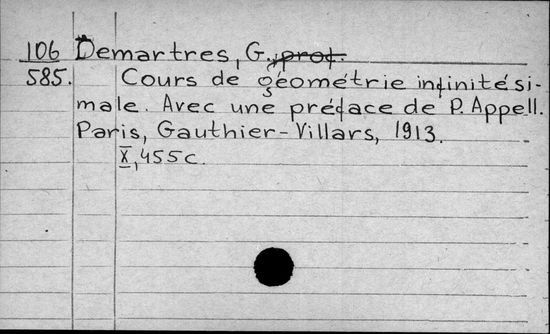 106 Demartres, G., prof.
585. Cours de géométrie infinitési-
male. Avec une préface de P. Appell.
Paris, Gauthier-Villars, 1913.
X, 455 c.